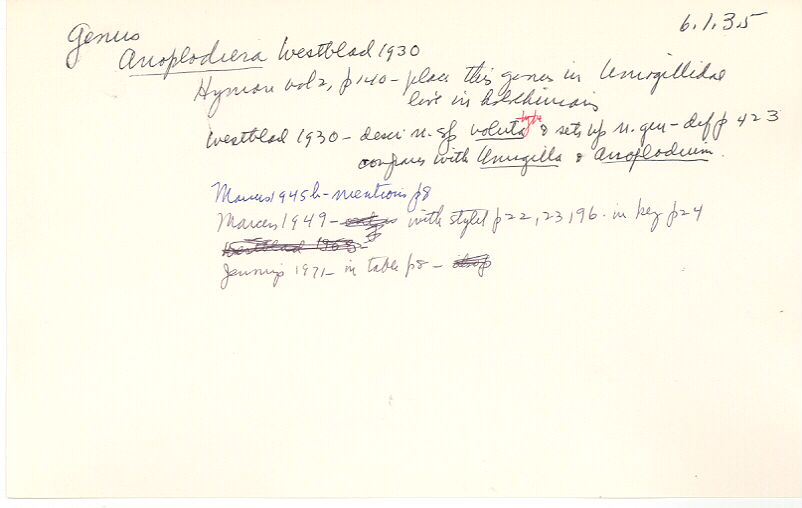 6.1.3.5
Genus
Anoplodiera Westblad 1930
Hyman vol 2, p 140 - place this genus in Umagillidae
live in holothurians
type
Westblad 1930 - descr n. sp voluta & sets up n. gen - def p 423
compares with Umagilla & Anoplodium.
Marcus 1945b - mentions p8
Marcus 1949 - with stylet p 22, 23, 96. in key p 24
Westblad 1953
Jennings 1971 - in table p8 -